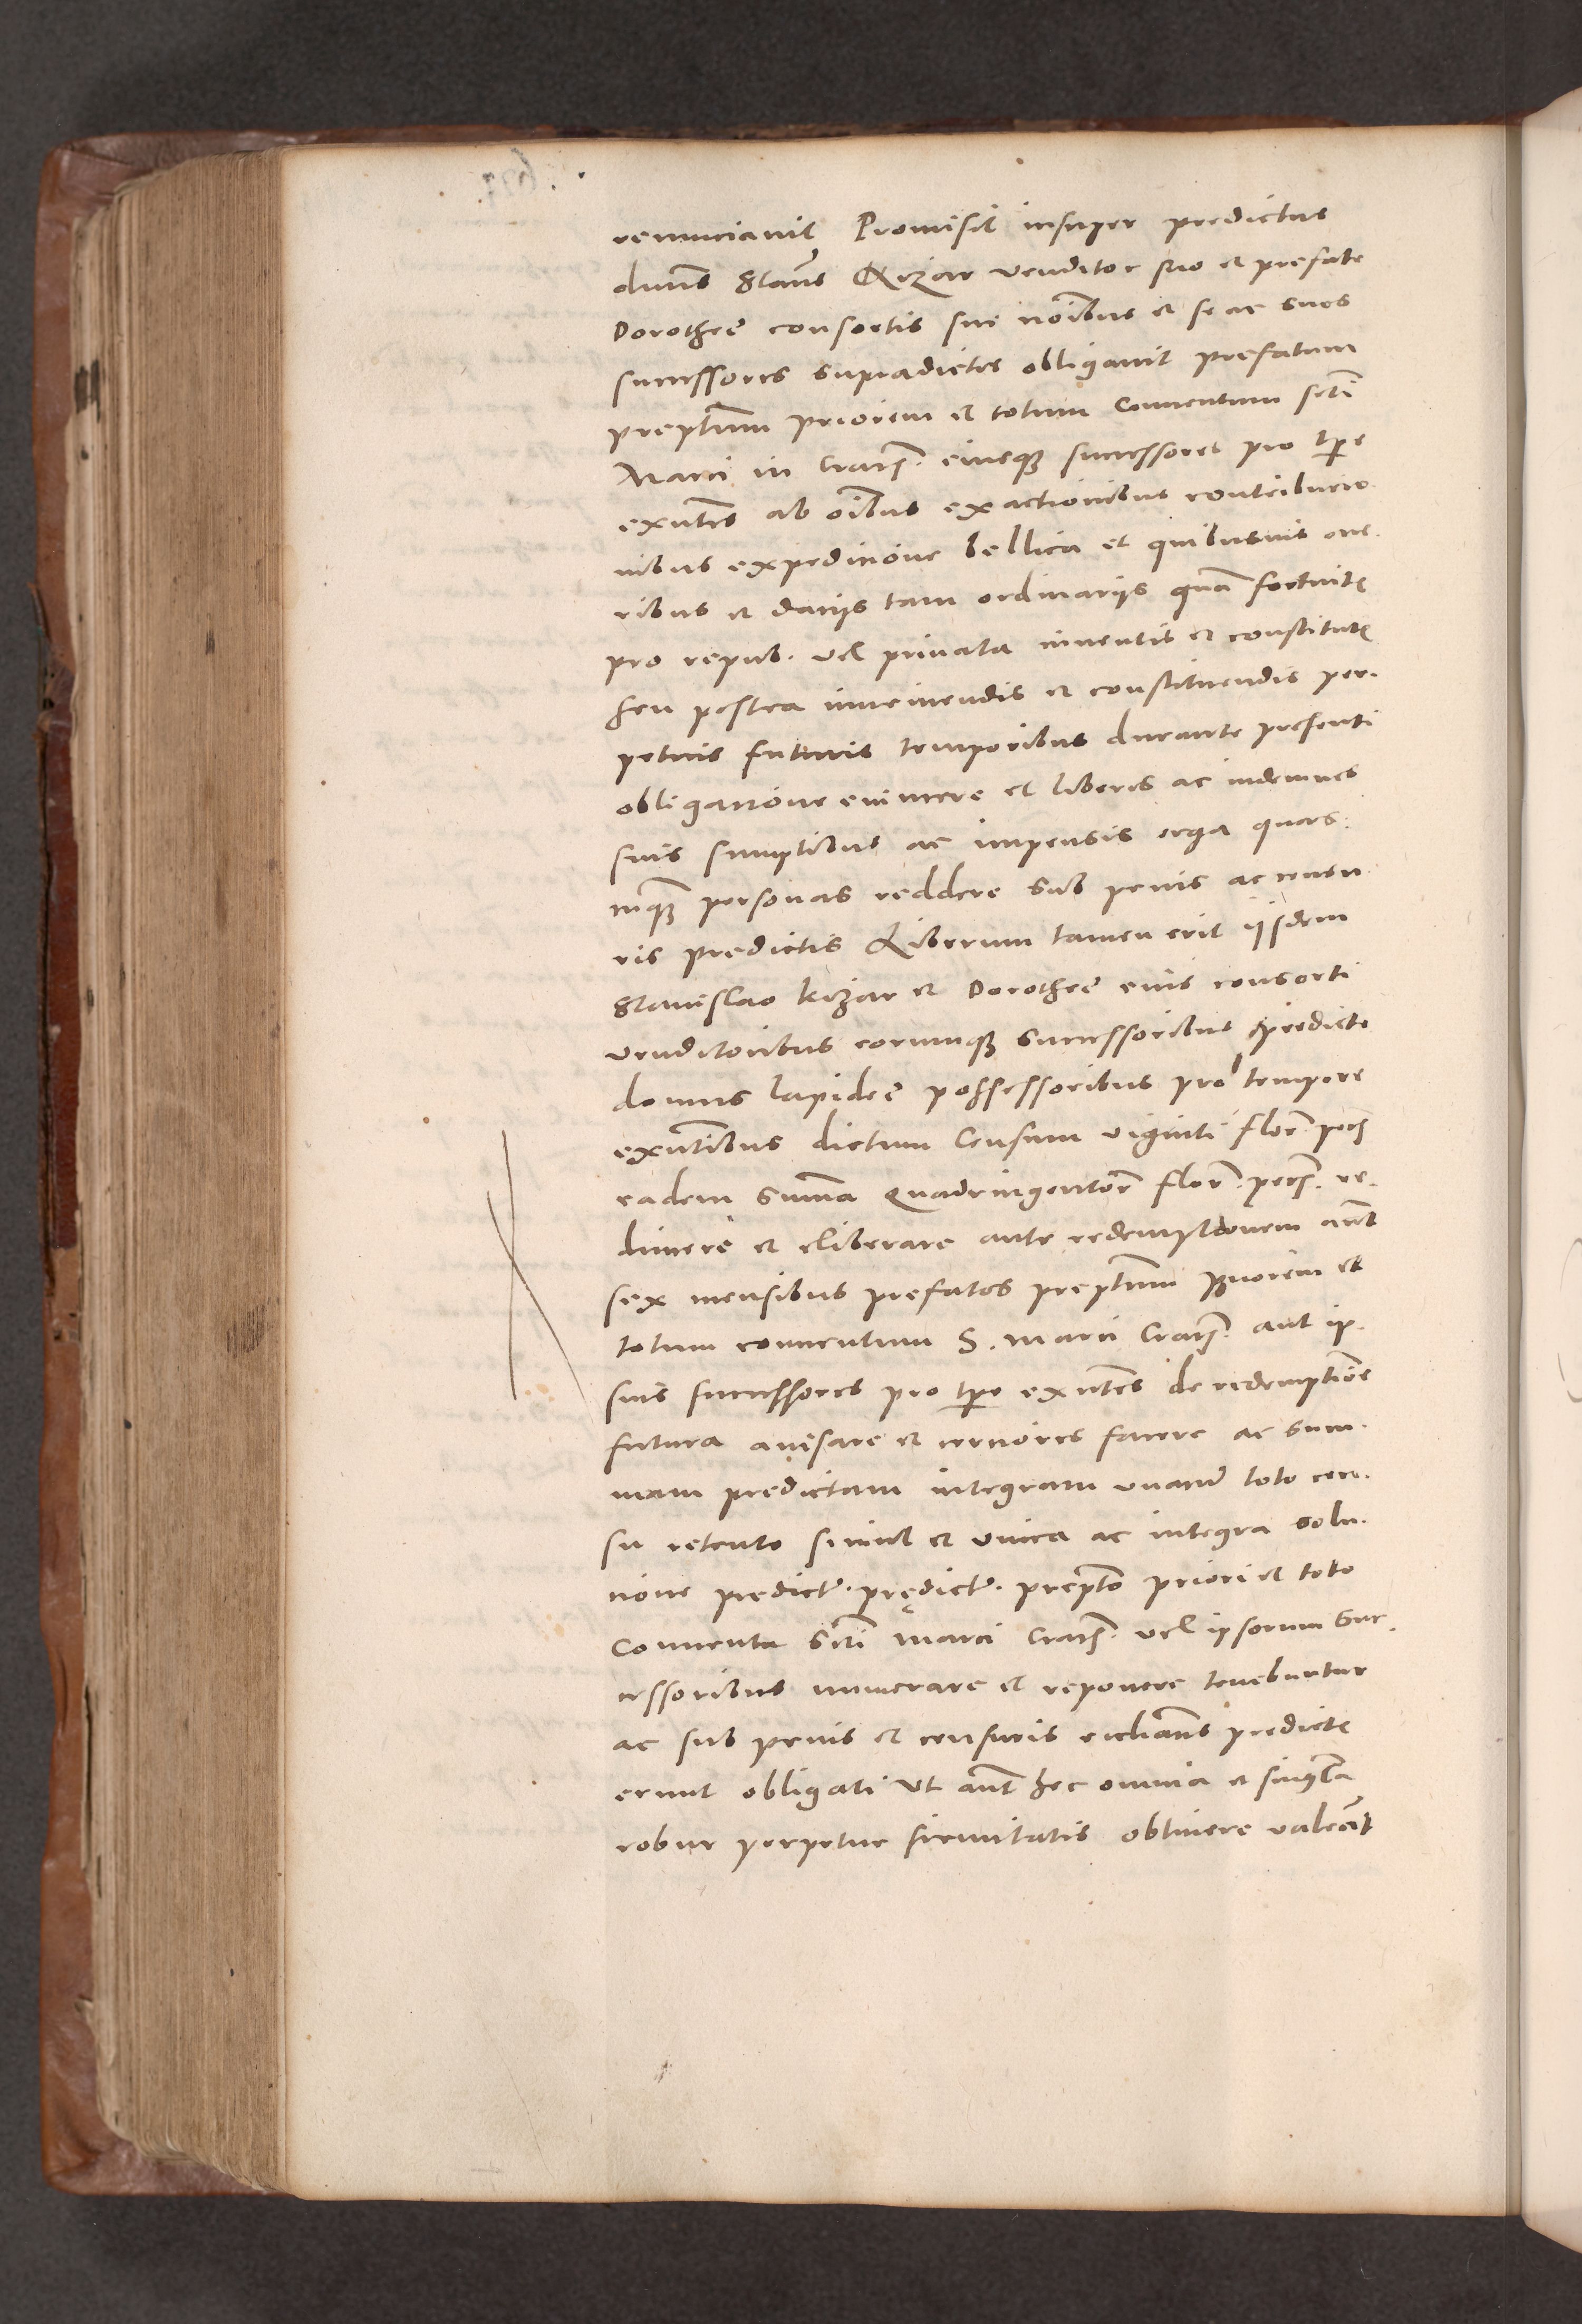 renunciavit Promisit insuper predictus
dnus Stans Kizar venditor suo et prefate
Dorotheę consortis sui noibus et se ac suos
successores supradictos obligavit prefatum
preptum priorem et totum Conventum scti
Marci in Crac. eiusque successores pro tpe
exntes ab oibus exactionibus contribucio
nibus expedicione bellica et quibusvis one.
ribus et daciis tam ordinariis quam fortuitę
pro repub. vel privata inventis et constitutę
seu postea inveniendis et constituendis per.
petuis futuris temporibus durante presenti
obligacione evincere et liberos ac indemnes
suis sumptibus ac impensis erga quas.
cunque personas reddere sub penis ac censu
ris predictis Liberum tamen erit iisdem
Stanislao Kizar et Dorotheę eius consorti
venditoribus eorumque successoribus predicte
domus lapideę possessoribus pro tempore
exntibus dictum Censum viginti flor. pecs
eadem summa Quadringentor flor. pecs. re.
dimere et eliberare ante redemptionem ant
sex mensibus prefatos preptum Priorem et
totum conventum S. Marci Crac. aut ip.
suis successores pro tpe exntes de redemptione
futura avisare et cerciores facere ac sum.
mam predictam integram unacum toto cen.
su retento simul et unica ac integra solu.
cione predict. prędict. prepto priori et toto
Conventu Scti Marci Crac. vel ipsorum Suc.
cessoribus numerare et reponere tenebuntur
ac sub penis et censuris ecclians predictę
erunt obligati Ut aut hec omnia et singla
robur perpetue firmitatis obtinere valeant